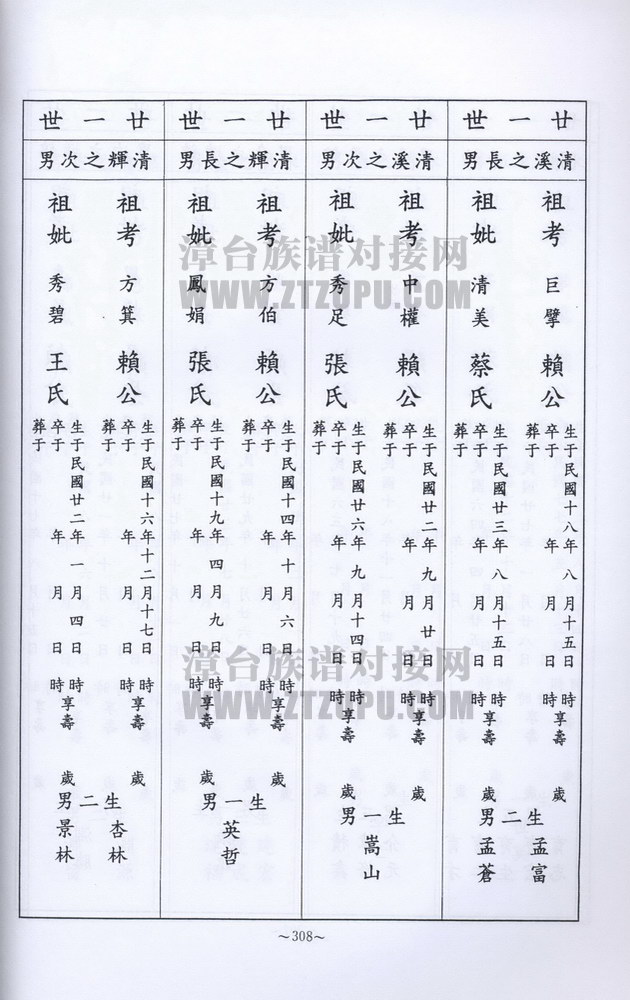 廿一世
清溪之長男
祖考 巨擘 賴公
生于民國十八年八月十五日 時享壽 歲
卒于 年 月 日 時
葬于
祖妣 清美 蔡氏
生于民國廿三年八月十五日 時享壽 歲
卒于 年 月 日 時
葬于
生二男
孟富
孟蒼
廿一世
清溪之次男
祖考 中權 賴公
生于民國廿二年九月廿日 時享壽 歲
卒于 年 月 日 時
葬于
祖妣 秀足 張氏
生于民國廿六年九月十四日 時享壽 歲
卒于 年 月 日 時
葬于
生一男
嵩山
廿一世
清輝之長男
祖考 方伯 賴公
生于民國十四年十月六日 時享壽 歲
卒于 年 月 日 時
葬于
祖妣 鳳娟 張氏
生于民國十九年四月九日 時享壽 歲
卒于 年 月 日 時
葬于
生一男
英哲
廿一世
清輝之次男
祖考 方箕 賴公
生于民國十六年十二月十七日 時享壽 歲
卒于 年 月 日 時
葬于
祖妣 秀碧 王氏
生于民國廿二年一月四日 時享壽 歲
卒于 年 月 日 時
葬于
生二男
杏林
景林
～308～
漳台族谱对接网
WWW.ZTZUPU.COM
漳台族谱对接网
WWW.ZTZUPU.COM